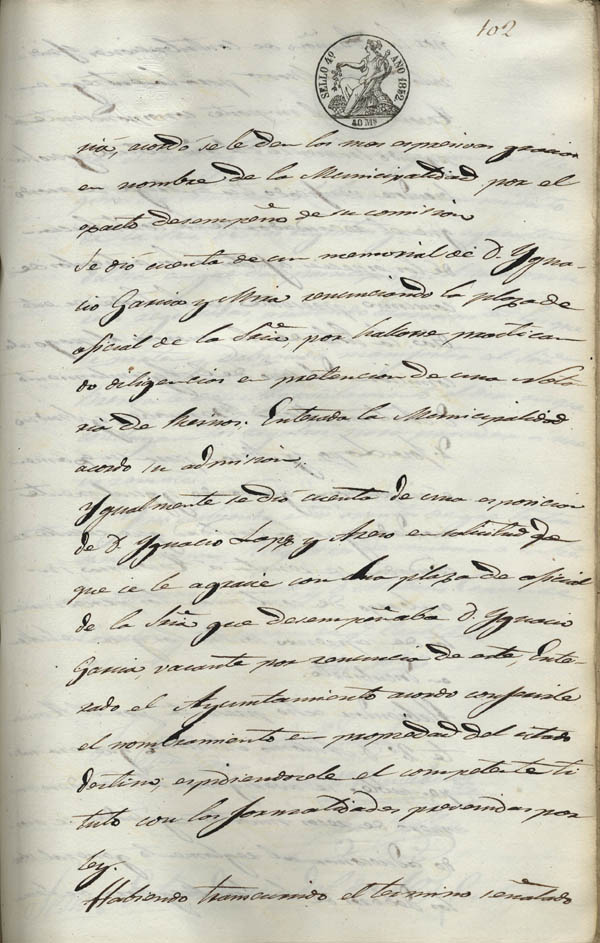 102
SELLO 4º AÑO 1842
40 Ms
ria, acordo se le den las mas espresivas gracias
en nombre de la Municipalidad por el
exacto desempeño de su comision
Se dió cuenta de un memorial de D. Ygna-
cio Garcia y renunciando la plaza de
oficial de la Sria, por hallarse practican
do diligencias en pretencion de una Nota
ria de Reinos. Enterada la Municipalidad
acordo su admision,
Ygualmente se dió cuenta de una esposicion
de D. Ygnacio Lopz y en solicitud de
que se le agracie con la plaza de oficial
de la Sria que desempeñaba D. Ygnacio
Garcia vacante por renuncia de este, Ente-
rado el Ayuntamiento acordo conferirle
el nombramiento en propiedad del citado
destino, espidiendosele el competente ti
tulo con las formalidades prevenidas por
ley.
Habiendo transcurrido el termino señalado